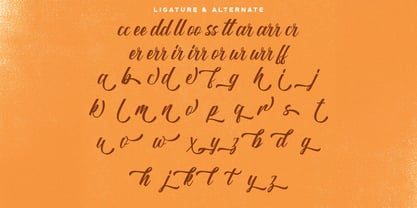 LIGATURE & ALTERNATE
cc ee dd ll oo ss tt ar arr cr
er err ir irr or ur urr ff
a b d d e f g h i j
k l m n o p q r s t
u v w x y z b d g
h j k l t y z